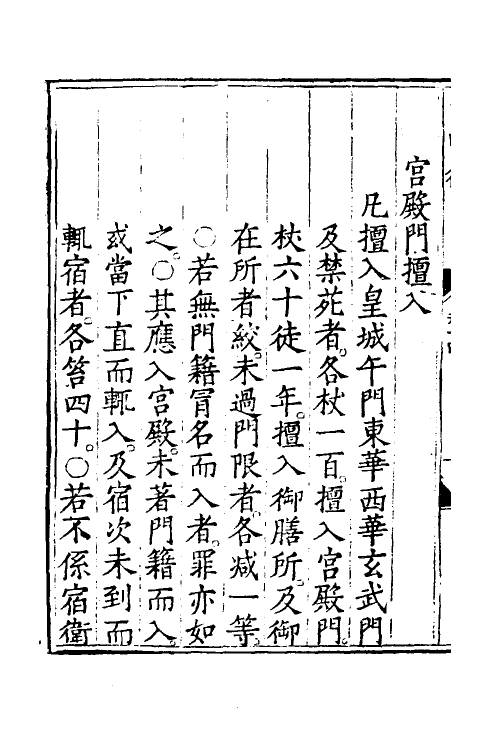 宫殿門擅入
凡擅入皇城午門東華西華玄武門
及禁苑者。各杖一百。擅入宫殿門。
杖六十徒一年。擅入御膳所。及御
在所者絞。未過門限者。各減一等。
○若無門籍冐名而入者。罪亦如
之。○其應入宫殿。未著門籍而入。
或當下直而輒入。及宿次未到而
輒宿者。各笞四十。○若不係宿衛